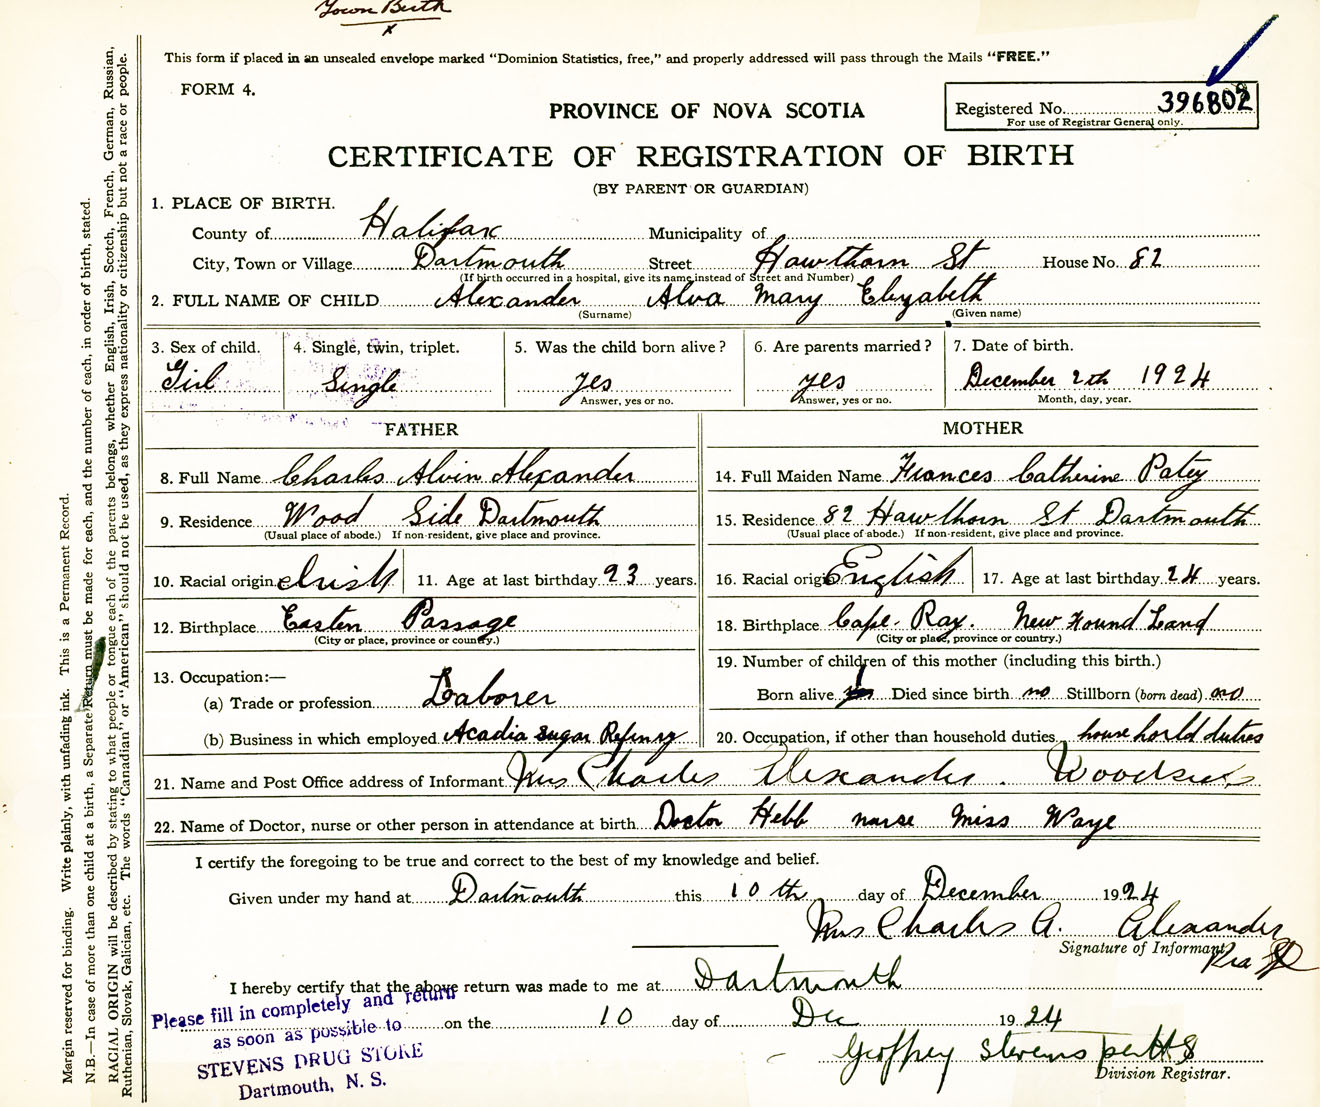 Town Birth
x
This form if placed in an unsealed envelope marked "Dominion Statistics, free," and properly addressed will pass through the Mails "FREE."
FORM 4.
Registered No. 396802
For use of Registrar General only.
PROVINCE OF NOVA SCOTIA
CERTIFICATE OF REGISTRATION OF BIRTH
(BY PARENT OR GUARDIAN)
1. PLACE OF BIRTH.
County of Halifax Municipality of
City, Town or Village Dartmouth Street Hawthorn St House No. 82
(If birth occurred in a hospital, give its name instead of Street and Number)
2. FULL NAME OF CHILD Alexander Alva Mary Elizabeth
(Surname) (Given name)
3. Sex of child. 4. Single, twin, triplet. 5. Was the child born alive? 6. Are parents married? 7. Date of birth.
Girl Single yes yes December 2th 1924
Answer, yes or no. Answer, yes or no. Month, day, year.
FATHER MOTHER
8. Full Name Charles Alvin Alexander 14. Full Maiden Name Frances Catherine Patey
9. Residence Wood Side Dartmouth 15. Residence 82 Hawthorn St Dartmouth
(Usual place of abode.) If non-resident, give place and province. (Usual place of abode.) If non-resident, give place and province.
10. Racial origin Irish 11. Age at last birthday 23 years. 16. Racial origin English 17. Age at last birthday 24 years.
12. Birthplace Easten Passage 18. Birthplace Cape Ray. New Found Land
(City or place, province or country.) (City or place, province or country.)
13. Occupation:— 19. Number of children of this mother (including this birth.)
(a) Trade or profession Laborer Born alive Died since birth no Stillborn (born dead) no
(b) Business in which employed Acadia Sugar Refinry 20. Occupation, if other than household duties. house horld duties
21. Name and Post Office address of Informant Mrs Charles Alexander. Woodside
22. Name of Doctor, nurse or other person in attendance at birth Doctor Hebb nurse Miss Waye
I certify the foregoing to be true and correct to the best of my knowledge and belief.
Given under my hand at Dartmouth this 10 th day of December 1924
Mrs Charles A. Alexander
Signature of Informant
I hereby certify that the above return was made to me at Dartmouth
on the 10 day of Dec 1924
Geoffrey Stevens per HS
Division Registrar.
Please fill in completely and return
as soon as possible to
STEVENS DRUG STORE
Dartmouth, N. S.
Margin reserved for binding. Write plainly, with unfading ink. This is a Permanent Record.
N.B.—In case of more than one child at a birth, a Separate Return must be made for each, and the number of each, in order of birth, stated.
RACIAL ORIGIN will be described by stating to what people or tongue each of the parents belongs, whether English, Irish, Scotch, French, German, Russian,
Ruthenian, Slovak, Galician, etc. The words "Canadian" or "American" should not be used, as they express nationality or citizenship but not a race or people.